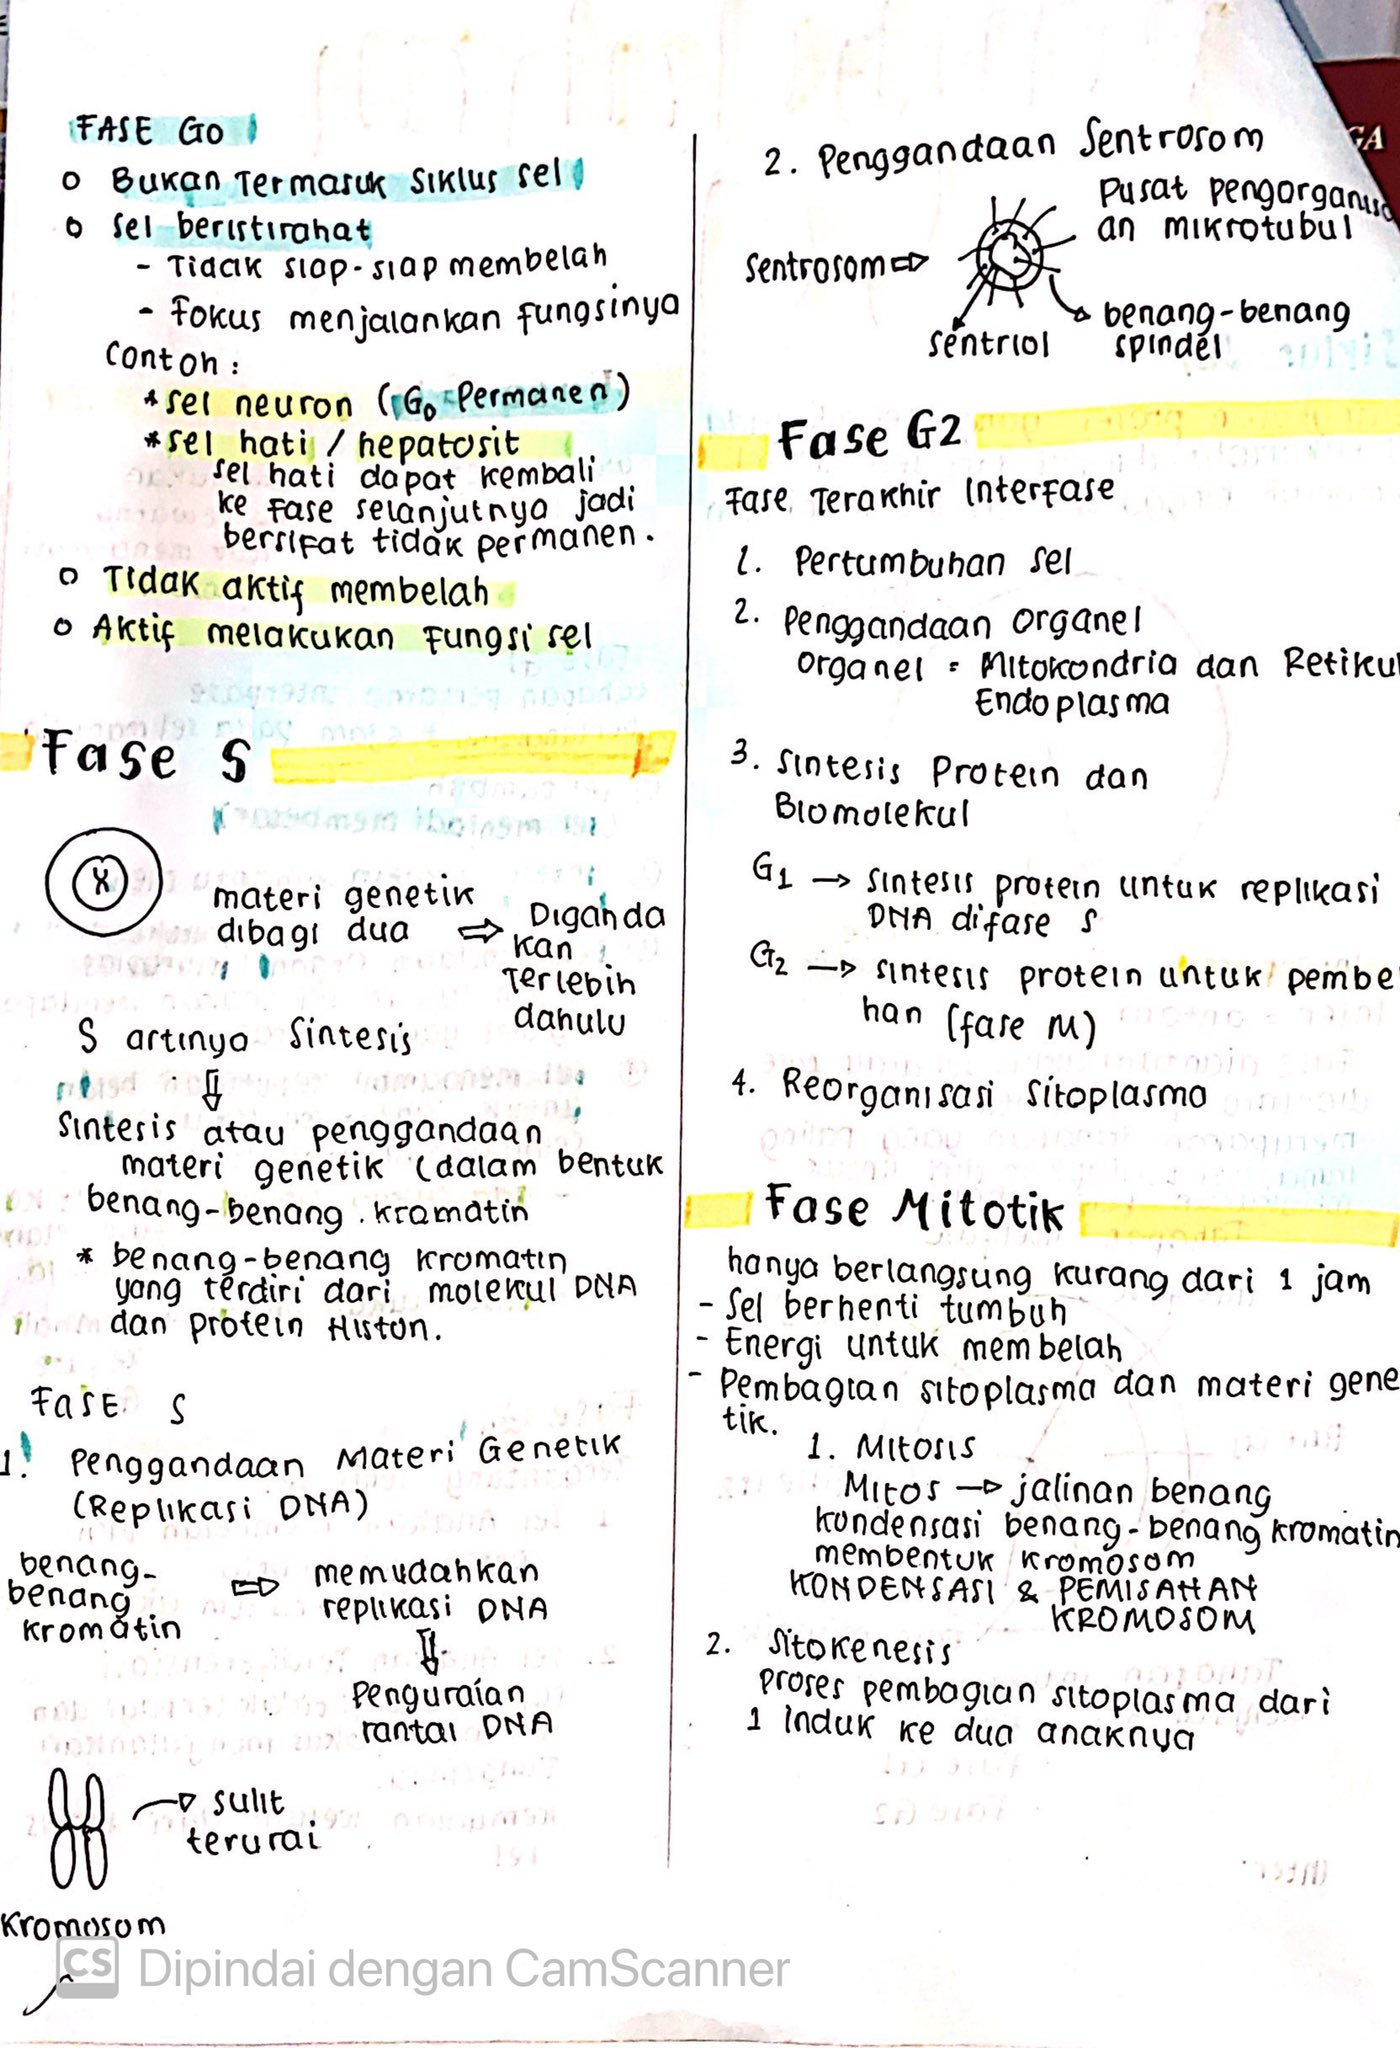 FASE G0
o Bukan Termasuk Siklus sel
o Sel beristirahat
- Tidak siap-siap membelah
- Fokus menjalankan fungsinya
Contoh :
* sel neuron (G0 Permanen)
* sel hati / hepatosit
sel hati dapat kembali
ke fase selanjutnya jadi
bersifat tidak permanen.
o Tidak aktif membelah
o Aktif melakukan fungsi sel
Fase S
materi genetik
dibagi dua ⇨ Diganda
kan
Terlebih
dahulu
S artinya Sintesis
⇩
Sintesis atau penggandaan
materi genetik (dalam bentuk
benang-benang kromatin
* benang-benang kromatin
yang terdiri dari molekul DNA
dan protein Histon.
FASE S
1. Penggandaan Materi Genetik
(Replikasi DNA)
benang-
benang
kromatin
⇨ memudahkan
replikasi DNA
⇩
Penguraian
rantai DNA
→ sulit
terurai
Kromosom
CS Dipindai dengan CamScanner
2. Penggandaan Sentrosom
Pusat pengorganisa
an mikrotubul
Sentrosom ⇨
benang-benang
spindel
Sentriol
GA
Fase G2
Fase Terakhir Interfase
1. Pertumbuhan sel
2. Penggandaan organel
organel = Mitokondria dan Retikul
Endoplasma
3. Sintesis Protein dan
Biomolekul
G1 → sintesis protein untuk replikasi
DNA difase S
G2 → sintesis protein untuk pembe
han (fase M)
4. Reorganisasi Sitoplasma
Fase Mitotik
hanya berlangsung kurang dari 1 jam
- Sel berhenti tumbuh
- Energi untuk membelah
- Pembagian sitoplasma dan materi gene
tik.
1. Mitosis
Mitos → jalinan benang
kondensasi benang-benang kromatin
membentuk kromosom
KONDENSASI & PEMISAHAN
KROMOSOM
2. Sitokenesis
proses pembagian sitoplasma dari
1 induk ke dua anaknya